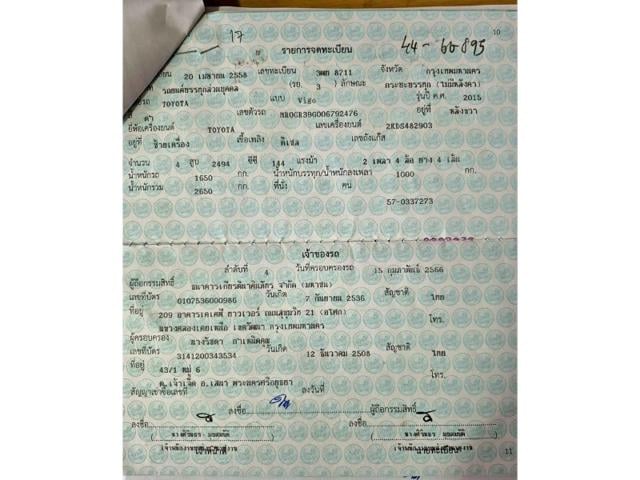 17
44-60895
10
รายการจดทะเบียน
20 เมษายน 2558 เลขทะเบียน 8711 จังหวัด กรุงเทพมหานคร
รถยนต์บรรทุกส่วนบุคคล (รย. 3 ) ลักษณะ กระบะบรรทุก (ไม่มีหลังคา)
TOYOTA แบบ Vigo รุ่นปี ค.ศ. 2015
สี ดำ เลขตัวรถ MR0CR39G006792476 อยู่ที่ หลังขวา
ยี่ห้อเครื่องยนต์ TOYOTA เลขเครื่องยนต์ 2KDS482903
อยู่ที่ ซ้ายเครื่อง เชื้อเพลิง ดีเซล เลขถังแก๊ส
จำนวน 4 สูบ 2494 ซีซี 144 แรงม้า 2 เพลา 4 ล้อ ยาง 4 เส้น
น้ำหนักรถ 1650 กก. น้ำหนักบรรทุก/น้ำหนักลงเพลา 1000 กก.
น้ำหนักรวม 2650 กก. ที่นั่ง คน
57-0337273
เจ้าของรถ
ลำดับที่ 4 วันที่ครอบครองรถ 15 กุมภาพันธ์ 2566
ผู้ถือกรรมสิทธิ์ ธนาคารเกียรตินาคินภัทร จำกัด (มหาชน)
เลขที่บัตร 0107536000986 วันเกิด 7 กันยายน 2536 สัญชาติ ไทย
ที่อยู่ 209 อาคารเคเคพี ทาวเวอร์ ถนนสุขุมวิท 21 (อโศก)
แขวงคลองเตยเหนือ เขตวัฒนา กรุงเทพมหานคร โทร.
ผู้ครอบครอง นางรัชดา
เลขที่บัตร 3141200343534 วันเกิด 12 ธันวาคม 2508 สัญชาติ ไทย
ที่อยู่ 43/1 หมู่ 6
ต.เจ้าเจ็ด อ.เสนา พระนครศรีอยุธยา โทร.
สัญญาเช่าซื้อเลขที่ ลงวันที่
ลงชื่อ ผู้ถือกรรมสิทธิ์
ลงชื่อ ลงชื่อ
เจ้าหน้าที่ นายทะเบียน
11